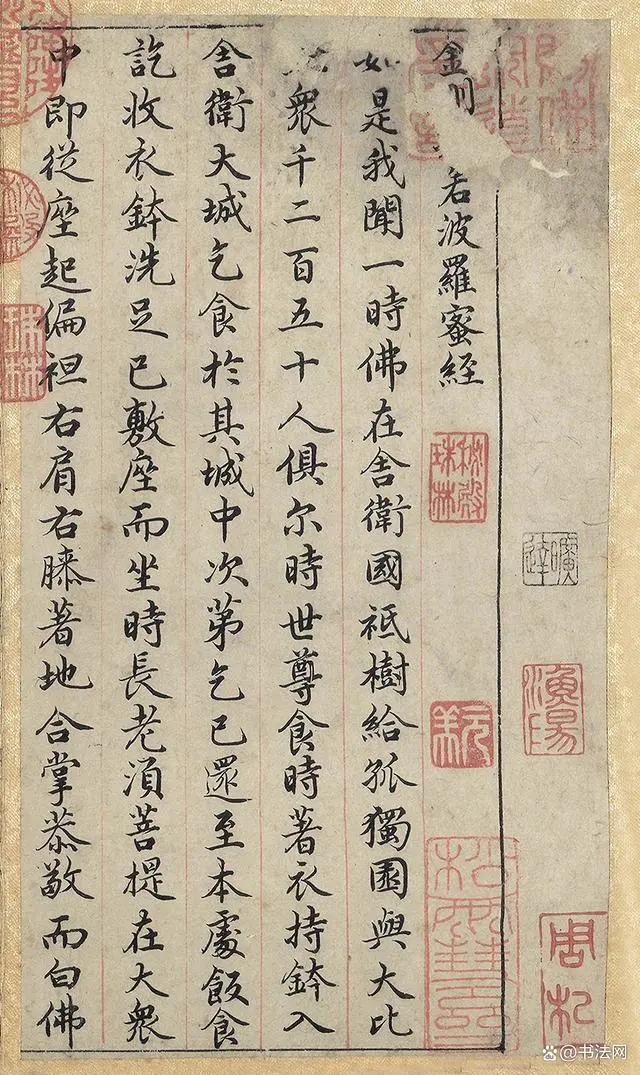 漁陽
金若波羅蜜經
秘殿珠林
如是我聞一時佛在舍衛國祇樹給孤獨園與大比
眾千二百五十人俱尔時世尊食時著衣持鉢入
舍衛大城乞食於其城中次第乞已還至本處飯食
訖收衣鉢洗足已敷座而坐時長老湏菩提在大眾
中即從座起偏袒右肩右膝著地合掌恭敬而白佛
@书法网